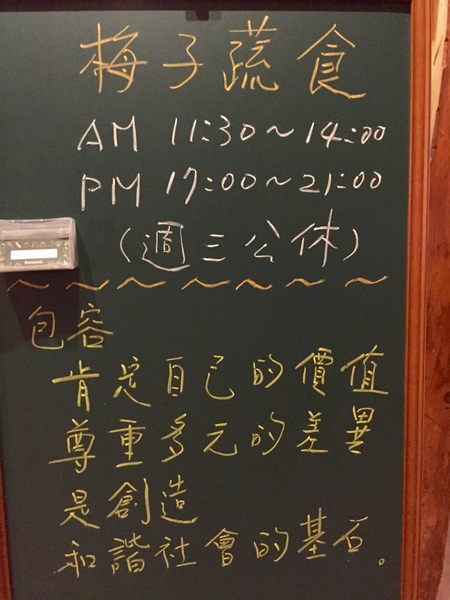 梅子蔬食
AM 11:30~14:00
PM 17:00~21:00
(週三公休)
~~~~~~~
包容
肯定自己的價值
尊重多元的差異
是創造
和諧社會的基石。